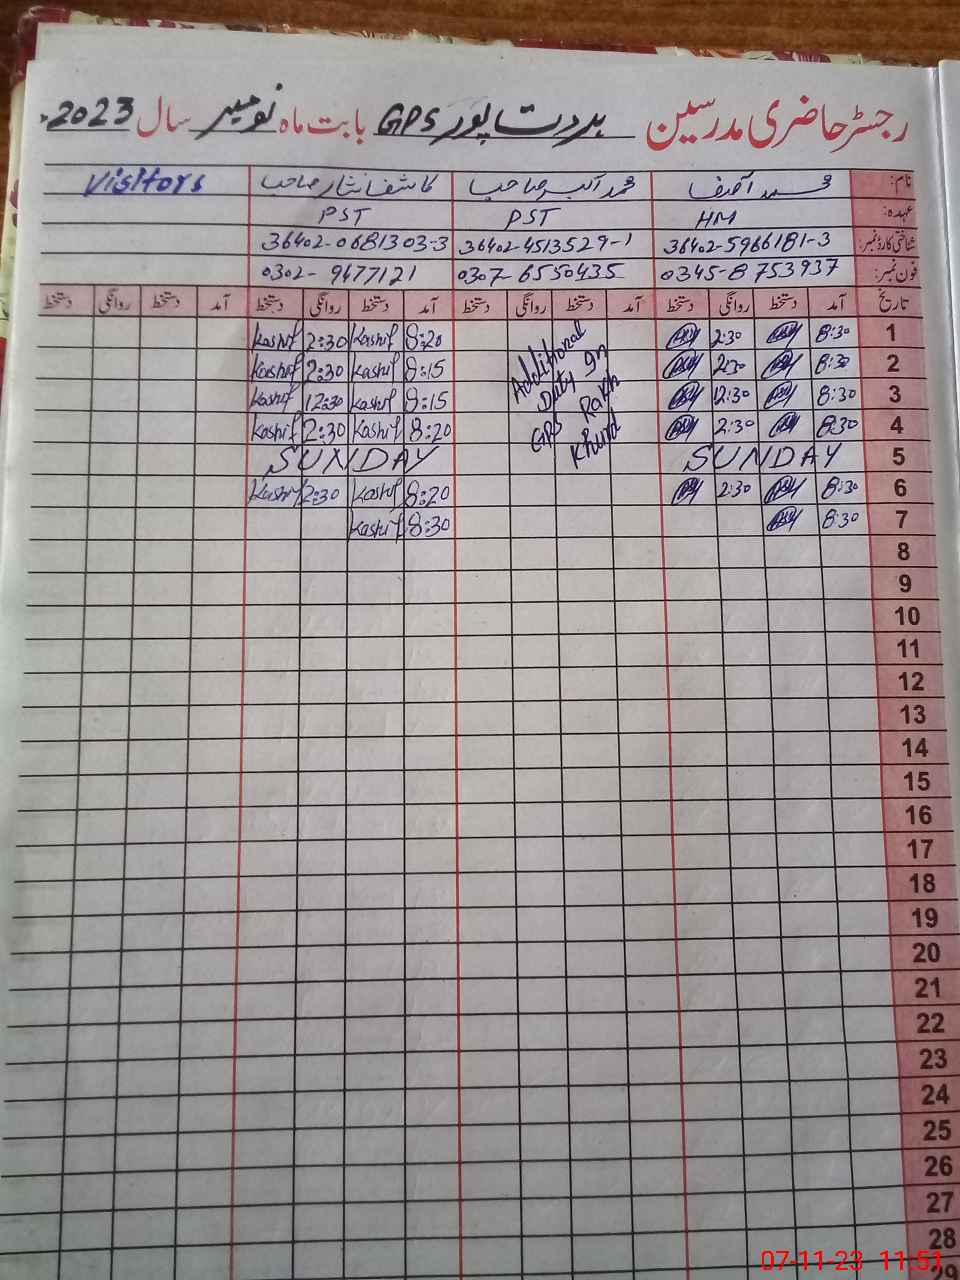 رجسٹر حاضری مدرسین GPS بابت ماہ نومبر سال 2023
نام: محمد صاحب کاشف نثار صاحب Visitors
عہدہ: HM PST PST
شناختی کارڈ نمبر: 36402-5966181-3 36402-4513529-1 36402-0681303-3
فون نمبر: 0345-8753937 0307-6550435 0302-9477121
تاریخ آمد دستخط روانگی دستخط آمد دستخط روانگی دستخط آمد دستخط روانگی دستخط آمد دستخط روانگی دستخط
1 8:30 2:30 Additional 8:20 Kashif 2:30 Kashif
2 8:30 2:30 Duty in 8:15 Kashif 2:30 Kashif
3 8:30 12:30 GPS Rakh 8:15 Kashif 12:30 Kashif
4 8:30 2:30 Khurd 8:20 Kashif 2:30 Kashif
5 SUNDAY SUNDAY
6 8:30 2:30 8:20 Kashif 2:30 Kashif
7 8:30 8:30 Kashif
8
9
10
11
12
13
14
15
16
17
18
19
20
21
22
23
24
25
26
27
28
29
07-11-23 11:51